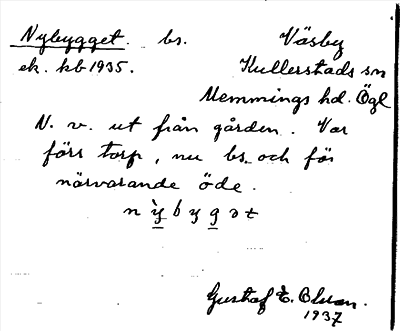 Nybygget. bs. Väsby
ek. kb 1935. Kullerstads sn
Memmings hd. Ögl
N. v. ut från gården. Var
förr torp, nu bs. och för
närvarande öde.
n ỳ b y g ə t
Gustaf E. Olsson.
1937